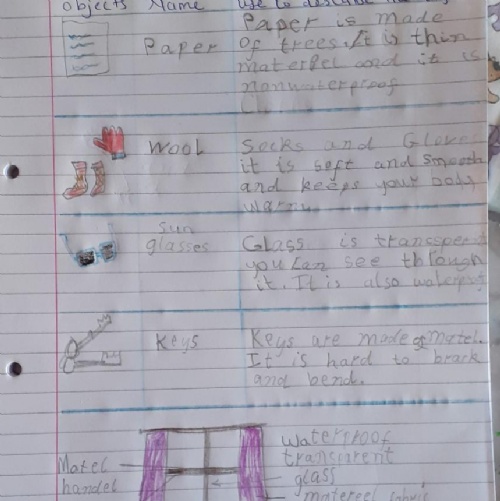 objects Name use to describe
Paper
Paper is made
of trees. It is thin
materel and it is
nonwaterproof
Wool
Socks and Gloves
it is soft and smooth
and keeps your body
warm
Sun
glasses
Glass is transsperent
you can see through
it. It is also waterproof
Keys
Keys are made of matel.
It is hard to brack
and bend.
Matel
handel
waterproof
transperent
glass
matereel fabric